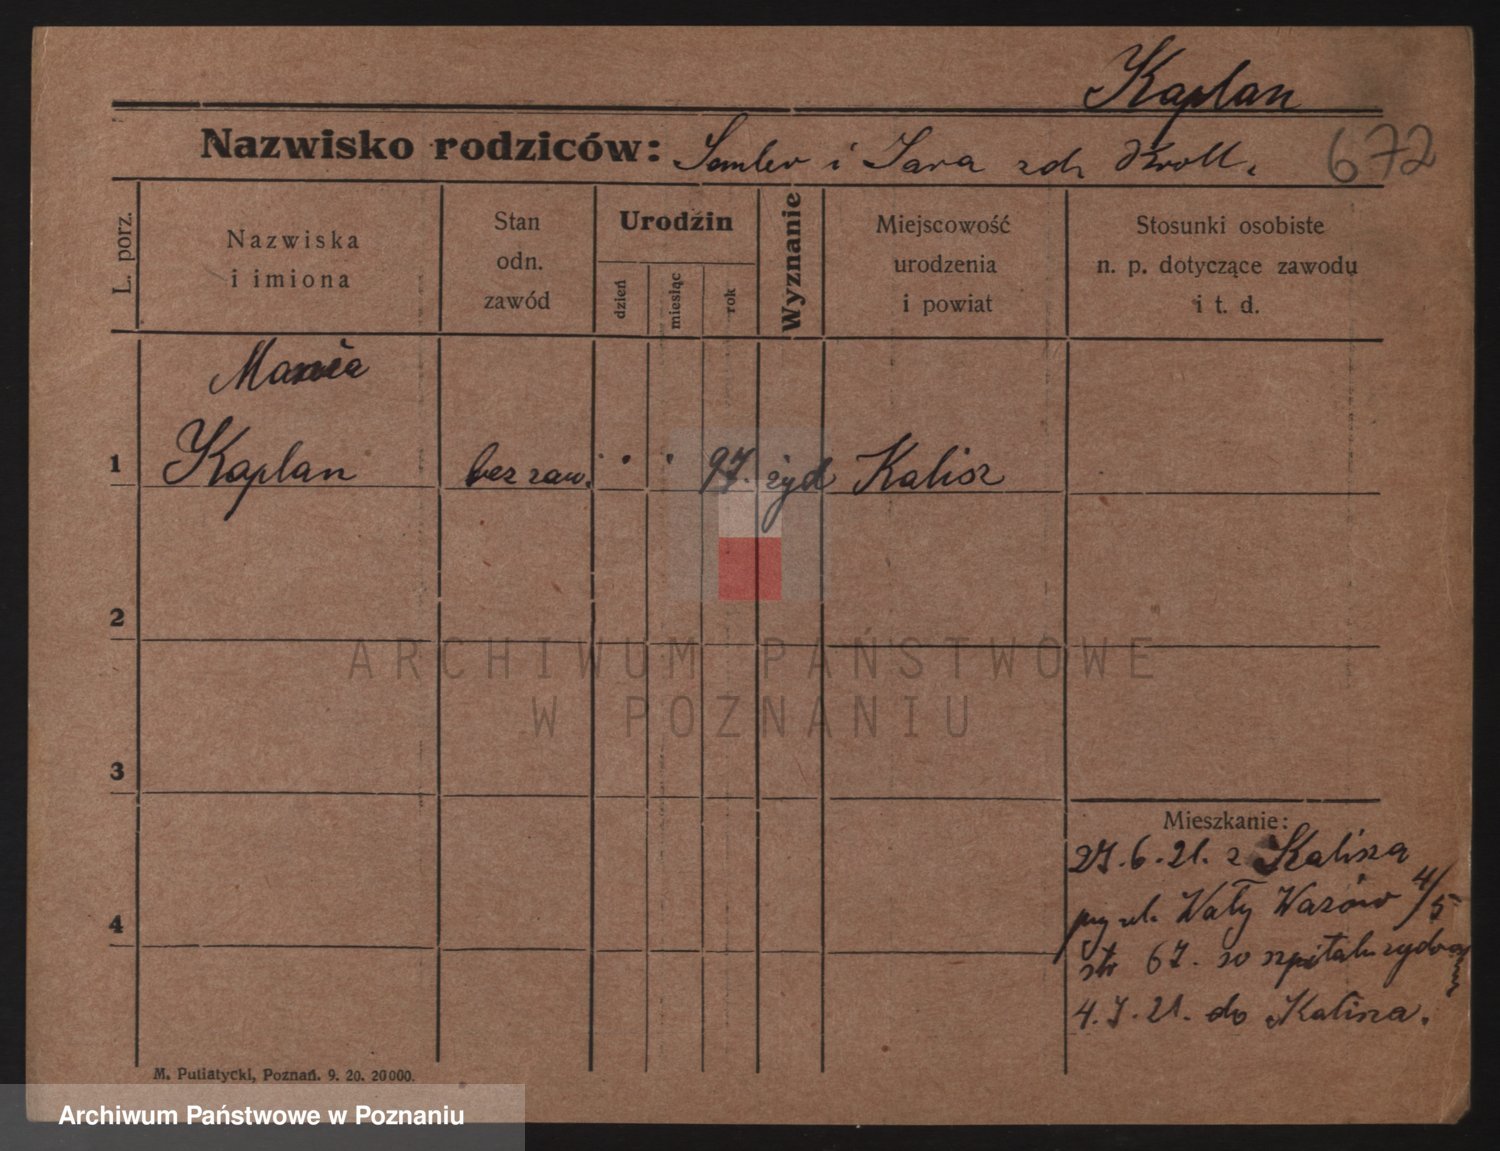 Kaplan
Nazwisko rodziców: Samler i Sara zdr Kroll.
672
L. porz.
Nazwiska
i imiona
Stan
odn.
zawód
Urodzin
dzień
miesiąc
rok
Wyznanie
Miejscowość
urodzenia
i powiat
Stosunki osobiste
n. p. dotyczące zawodu
i t. d.
1
Kaplan
bez zaw.
97.
żyd
Kalisz
2
ARCHIWUM PAŃSTWOWE
W POZNANIU
3
Mieszkanie:
27.6.21. z Kalisza
ul. Wały Wazów 4/5
str 67. w szpitalu
4
4.7.21. do Kalisza.
M. Putiatycki, Poznań. 9. 20. 20000.
Archiwum Państwowe w Poznaniu